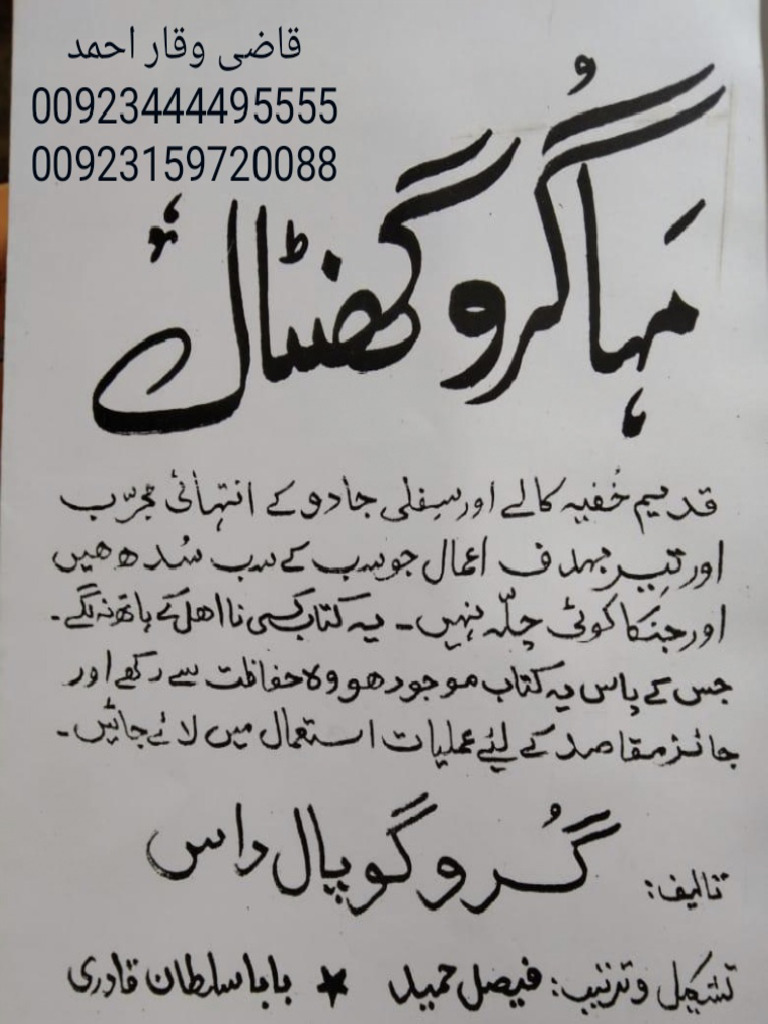 قاضی وقار احمد
00923444495555
00923159720088
مہا گُرو گھنٹال
قدیم خُفیہ کالے اور سِفلی جادو کے انتہائی مجرّب
اور تیر بہدف اعمال جو سب کے سب سُدھ ھیں
اور جنکا کوئی چِلّہ نہیں۔ یہ کتاب کسی نا اھل کے ہاتھ نہ لگے۔
جس کے پاس یہ کتاب موجود ھو وہ حفاظت سے رکھے اور
جائز مقاصد کے لیئے عملیات استعمال میں لائے جائیں۔
تالیف: گُرو گوپال داس
تشکیل و ترتیب: فیصل حمید ★ بابا سلطان قادری